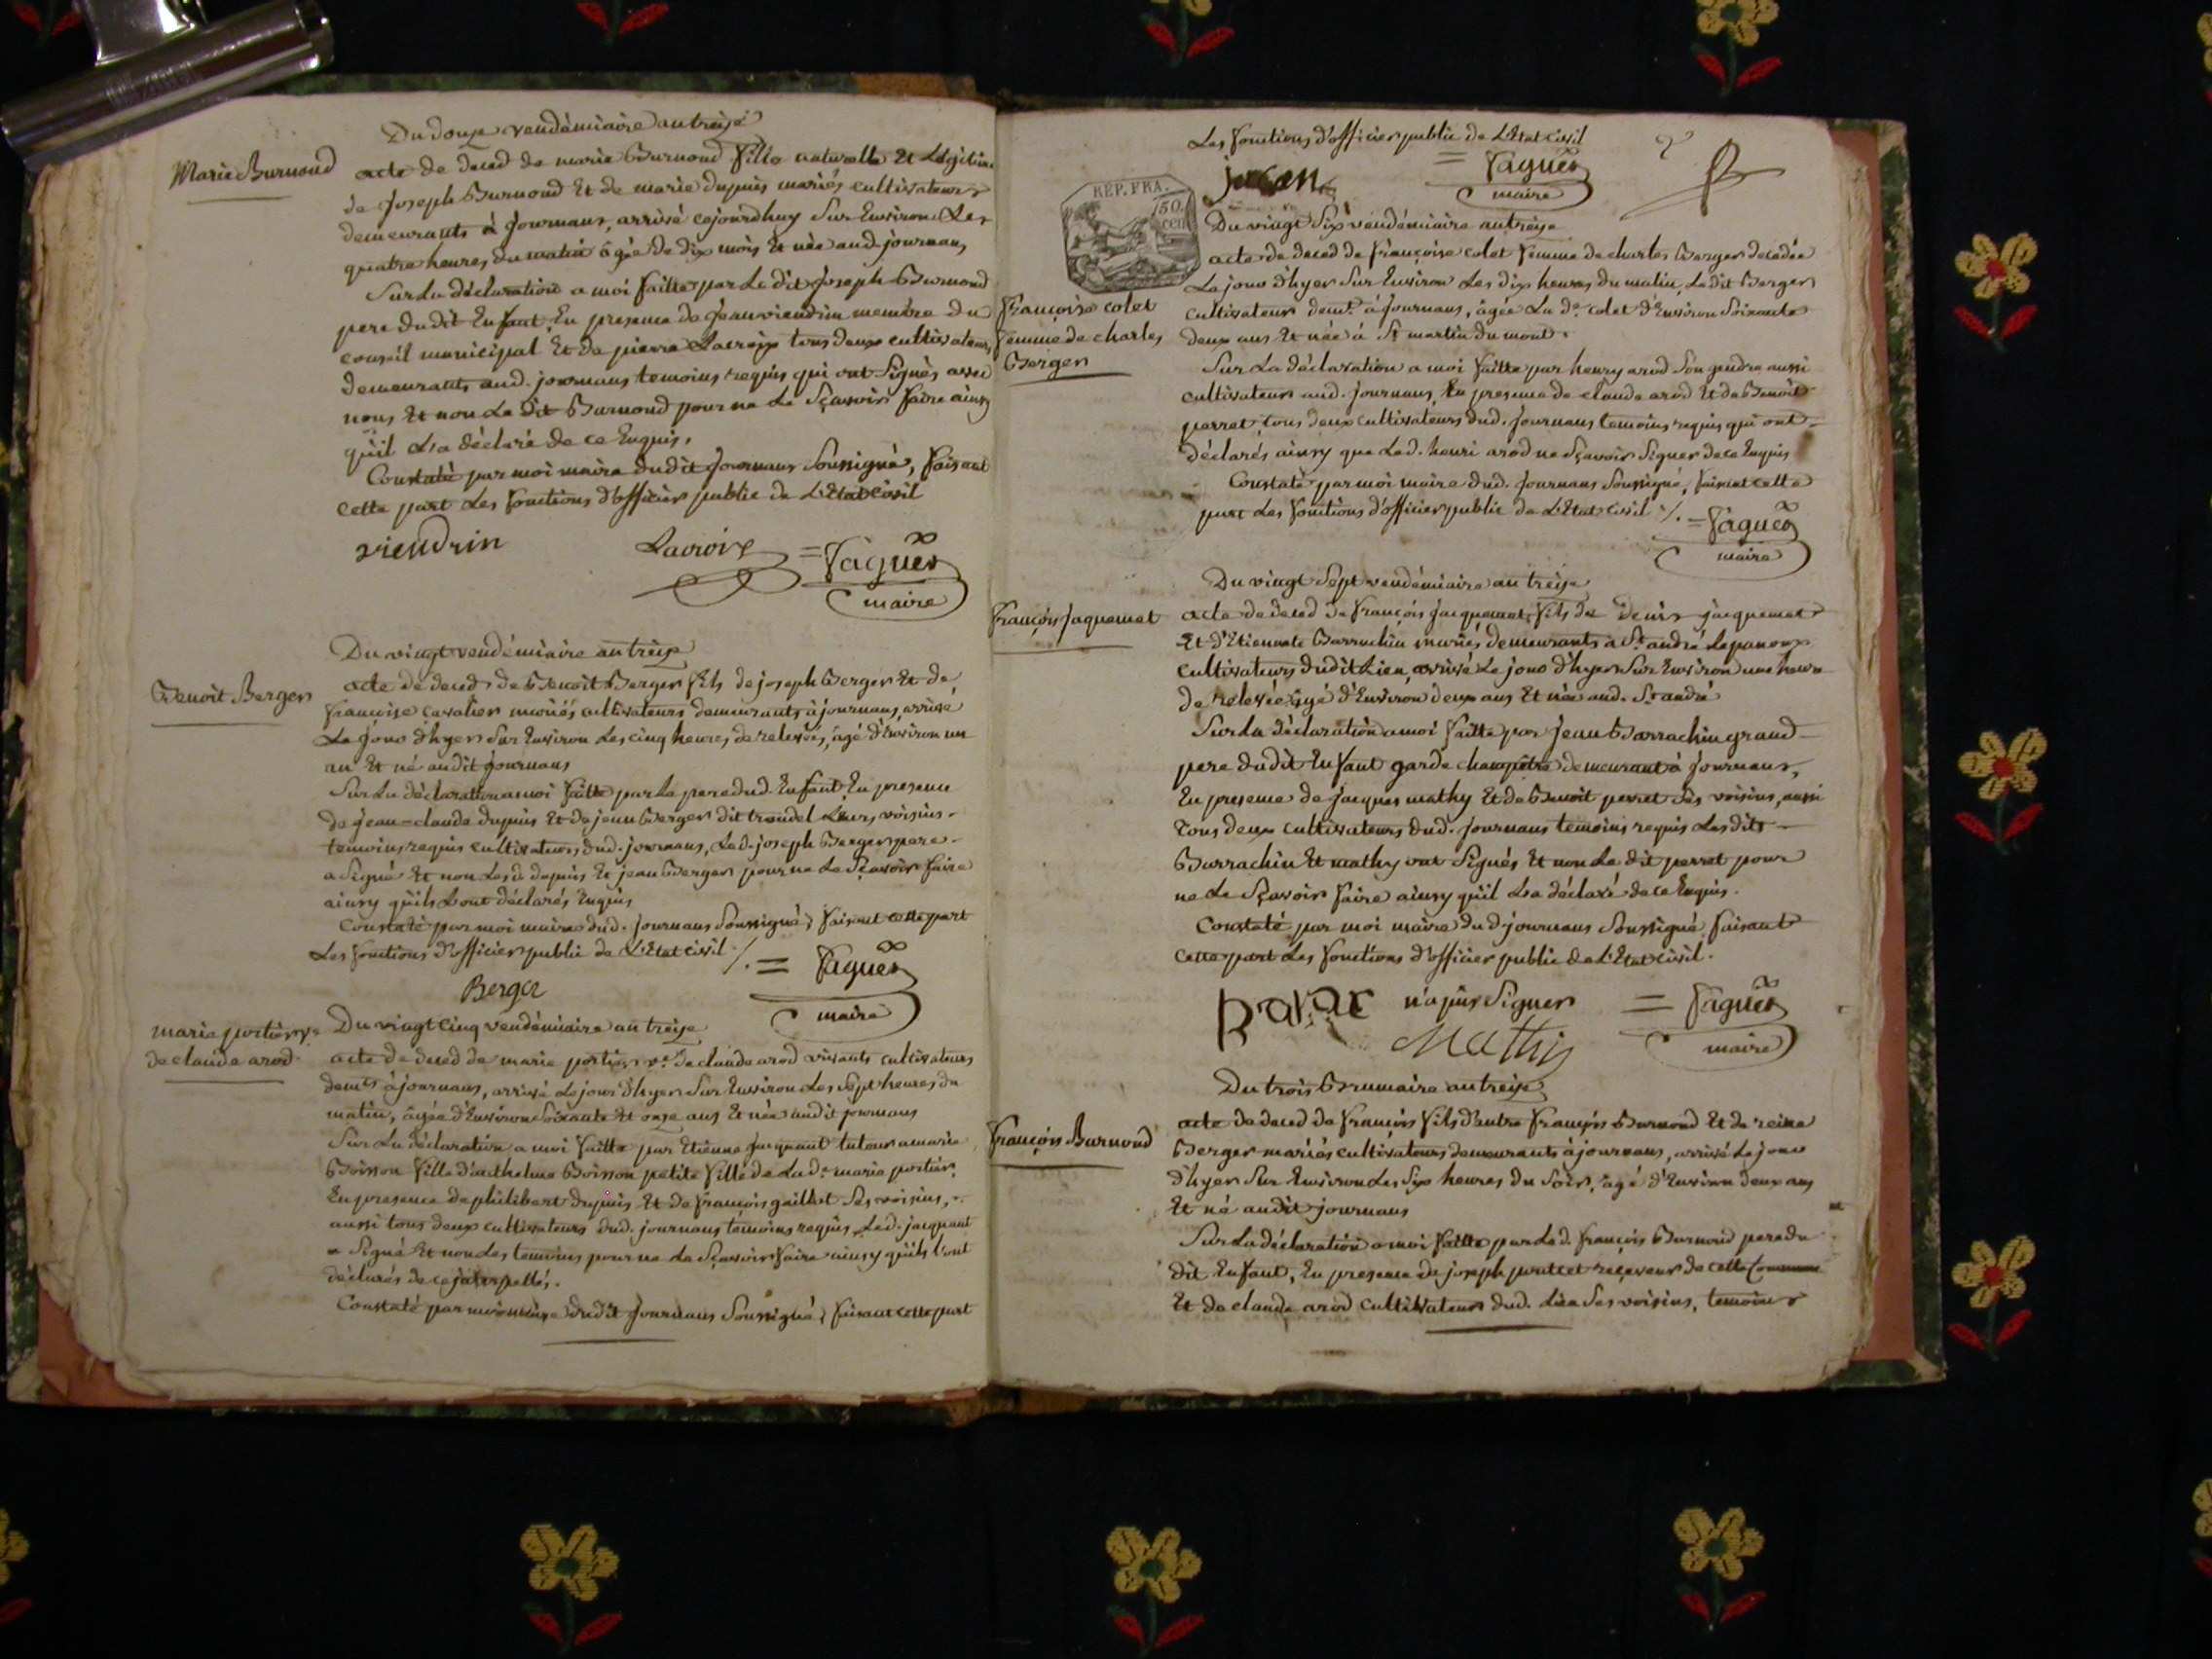 Du douze vendémiaire an treize
Marie Burnoud
acte de deced de marie Burnoud fille naturelle Et Légitime
de joseph Burnoud Et de marie dupuis mariés cultivateurs
demeurants à journans, arrivé cejourdhuy Sur Environ Les
quatre heures du matin agée de dix mois Et née aud. journans
Sur La déclaration a moi faitte par Le dit joseph Burnoud
pere dudit Enfant, En presence de jean viendrin membre du
conseil municipal Et de pierre Lacroix tous deux cultivateurs
demeurants aud. journans temoins requis qui ont Signés avec
nous Et non Le dit Burnoud pour ne Le Sçavoir faire ainsy
qu'il L'a déclaré de ce Enquis.
Constaté par moi maire dudit journans Soussigné, faisant
cette part Les fonctions d'officier public de L'Etat civil
viendrin Lacroix = faguës
maire
Du vingt vendémiaire an treize
Benoit Berger
acte de deced de Benoit Berger fils de joseph Berger Et de
francoise cavalier mariés cultivateurs demeurants à journans, arrivé
Le jour d'hyer Sur Environ Les cinq heures de relevée, agé d'Environ un
an Et né audit journans
Sur La déclaration a moi faitte par Le pere dud. Enfant En presence
de jean=claude dupuis Et de jean Berger dit trondel Leurs voisins
temoins requis cultivateurs dud. journans, Led. joseph Berger pere
a Signé Et non Lesd. dupuis Et jean Berger pour ne Le Sçavoir faire
ainsy qu'ils L'ont déclarés Enquis
Constaté par moi maire dud. journans Soussigné, faisant cette part
Les fonctions d'officier public de L'Etat civil ./. = faguës
Berger maire
marie portier ve.
de claude arod
Du vingt cinq vendémiaire an treize
acte de deced de marie portier ve. de claude arod vivants cultivateurs
demts à journans, arrivé Le jour d'hyer Sur Environ Les Sept heures du
matin, agée d'Environ Soixante Et onze ans Et née audit journans
Sur La déclaration a moi faitte par Etienne jacquant tuteur a marie
Boisson fille d'anthelme Boisson petite fille de La de. marie portier,
En presence de philibert dupuis Et de françois gaillet Ses voisins,
aussi tous deux cultivateurs dud. journans temoins requis, Led. jacquant
a Signé Et non Les temoins pour ne Le Sçavoir faire ainsy qu'ils L'ont
déclarés de ce jnterpellés.
Constaté par moi maire dudit journans Soussigné, faisant cette part
Les fonctions d'officier public de L'Etat civil
= faguës
maire
REP. FRA.
50
cen
Du vingt Six vendémiaire an treize
françoise colet
femme de charles
Berger
acte de deced de françoise colet femme de charles Berger decedée
Le jour d'hyer Sur Environ Les dix heures du matin, Le dit Berger
cultivateur demt. à journans, agée La de. colet d'Environ Soixante
deux ans Et née à St martin du mont.
Sur La déclaration a moi faitte par henry arod Son gendre aussi
cultivateur aud. journans, En presence de claude arod Et de Benoit
perret tous deux cultivateurs dud. journans temoins requis qui ont
déclarés ainsy que Led. henri arod ne Sçavoir Signer de ce Enquis
Constaté par moi maire dud. journans Soussigné, faisant cette
part Les fonctions d'officier public de L'Etat civil ./. = faguës
maire
Du vingt Sept vendémiaire an treize
françois jaquemet
acte de deced de françois jacquemet fils de Denis jacquemet
Et d'Etiennete Barrachin mariés demeurants à St. andré Lepanoux
cultivateurs dudit Lieu, arrivé Le jour d'hyer Sur Environ une heure
de relevée agé d'Environ deux ans Et née aud. St andré
Sur La déclaration a moi faitte par jean Barrachin grand
pere dudit Enfant garde champêtre demeurant à journans,
En presence de jacques mathy Et de Benoit perret Ses voisins, aussi
tous deux cultivateurs dud. journans temoins requis Les dits
Barrachin Et mathy ont Signés Et non Le dit perret pour
ne Le Sçavoir faire ainsy qu'il L'a déclaré de ce Enquis.
Constaté par moi maire dud journans Soussigné faisant
cette part Les fonctions d'officier public de L'Etat civil.
n'a pus Signer = faguës
Mathy maire
Du trois Brumaire an treize
françois Burnoud
acte de deced de françois fils d'autre françois Burnoud Et de reine
Berger mariés cultivateurs demeurants à journans, arrivé Le jour
d'hyer Sur Environ Les Six heures du Soir, agé d'Environ deux ans
Et né audit journans
Sur La déclaration a moi faitte par Led. françois Burnoud pere du
dit Enfant, En presence de joseph receveur de cette Commune
Et de claude arod cultivateur dud. Lieu Ses voisins, temoins